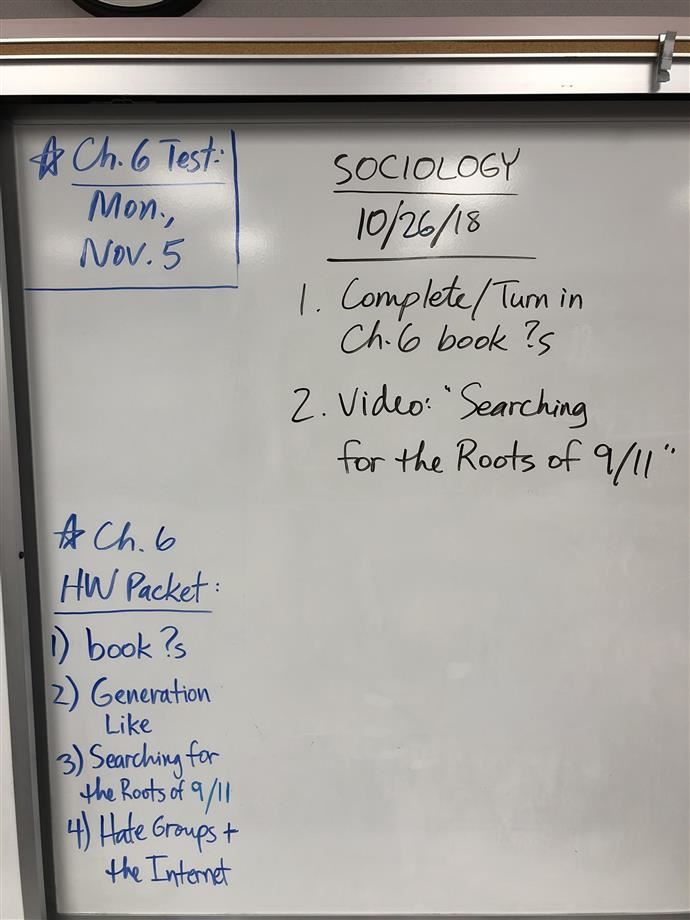 ☆ Ch. 6 Test:
Mon.,
Nov. 5
SOCIOLOGY
10/26/18
1. Complete/Turn in
Ch. 6 book ?s
2. Video: "Searching
for the Roots of 9/11"
☆ Ch. 6
HW Packet:
1) book ?s
2) Generation
Like
3) Searching for
the Roots of 9/11
4) Hate Groups +
the Internet